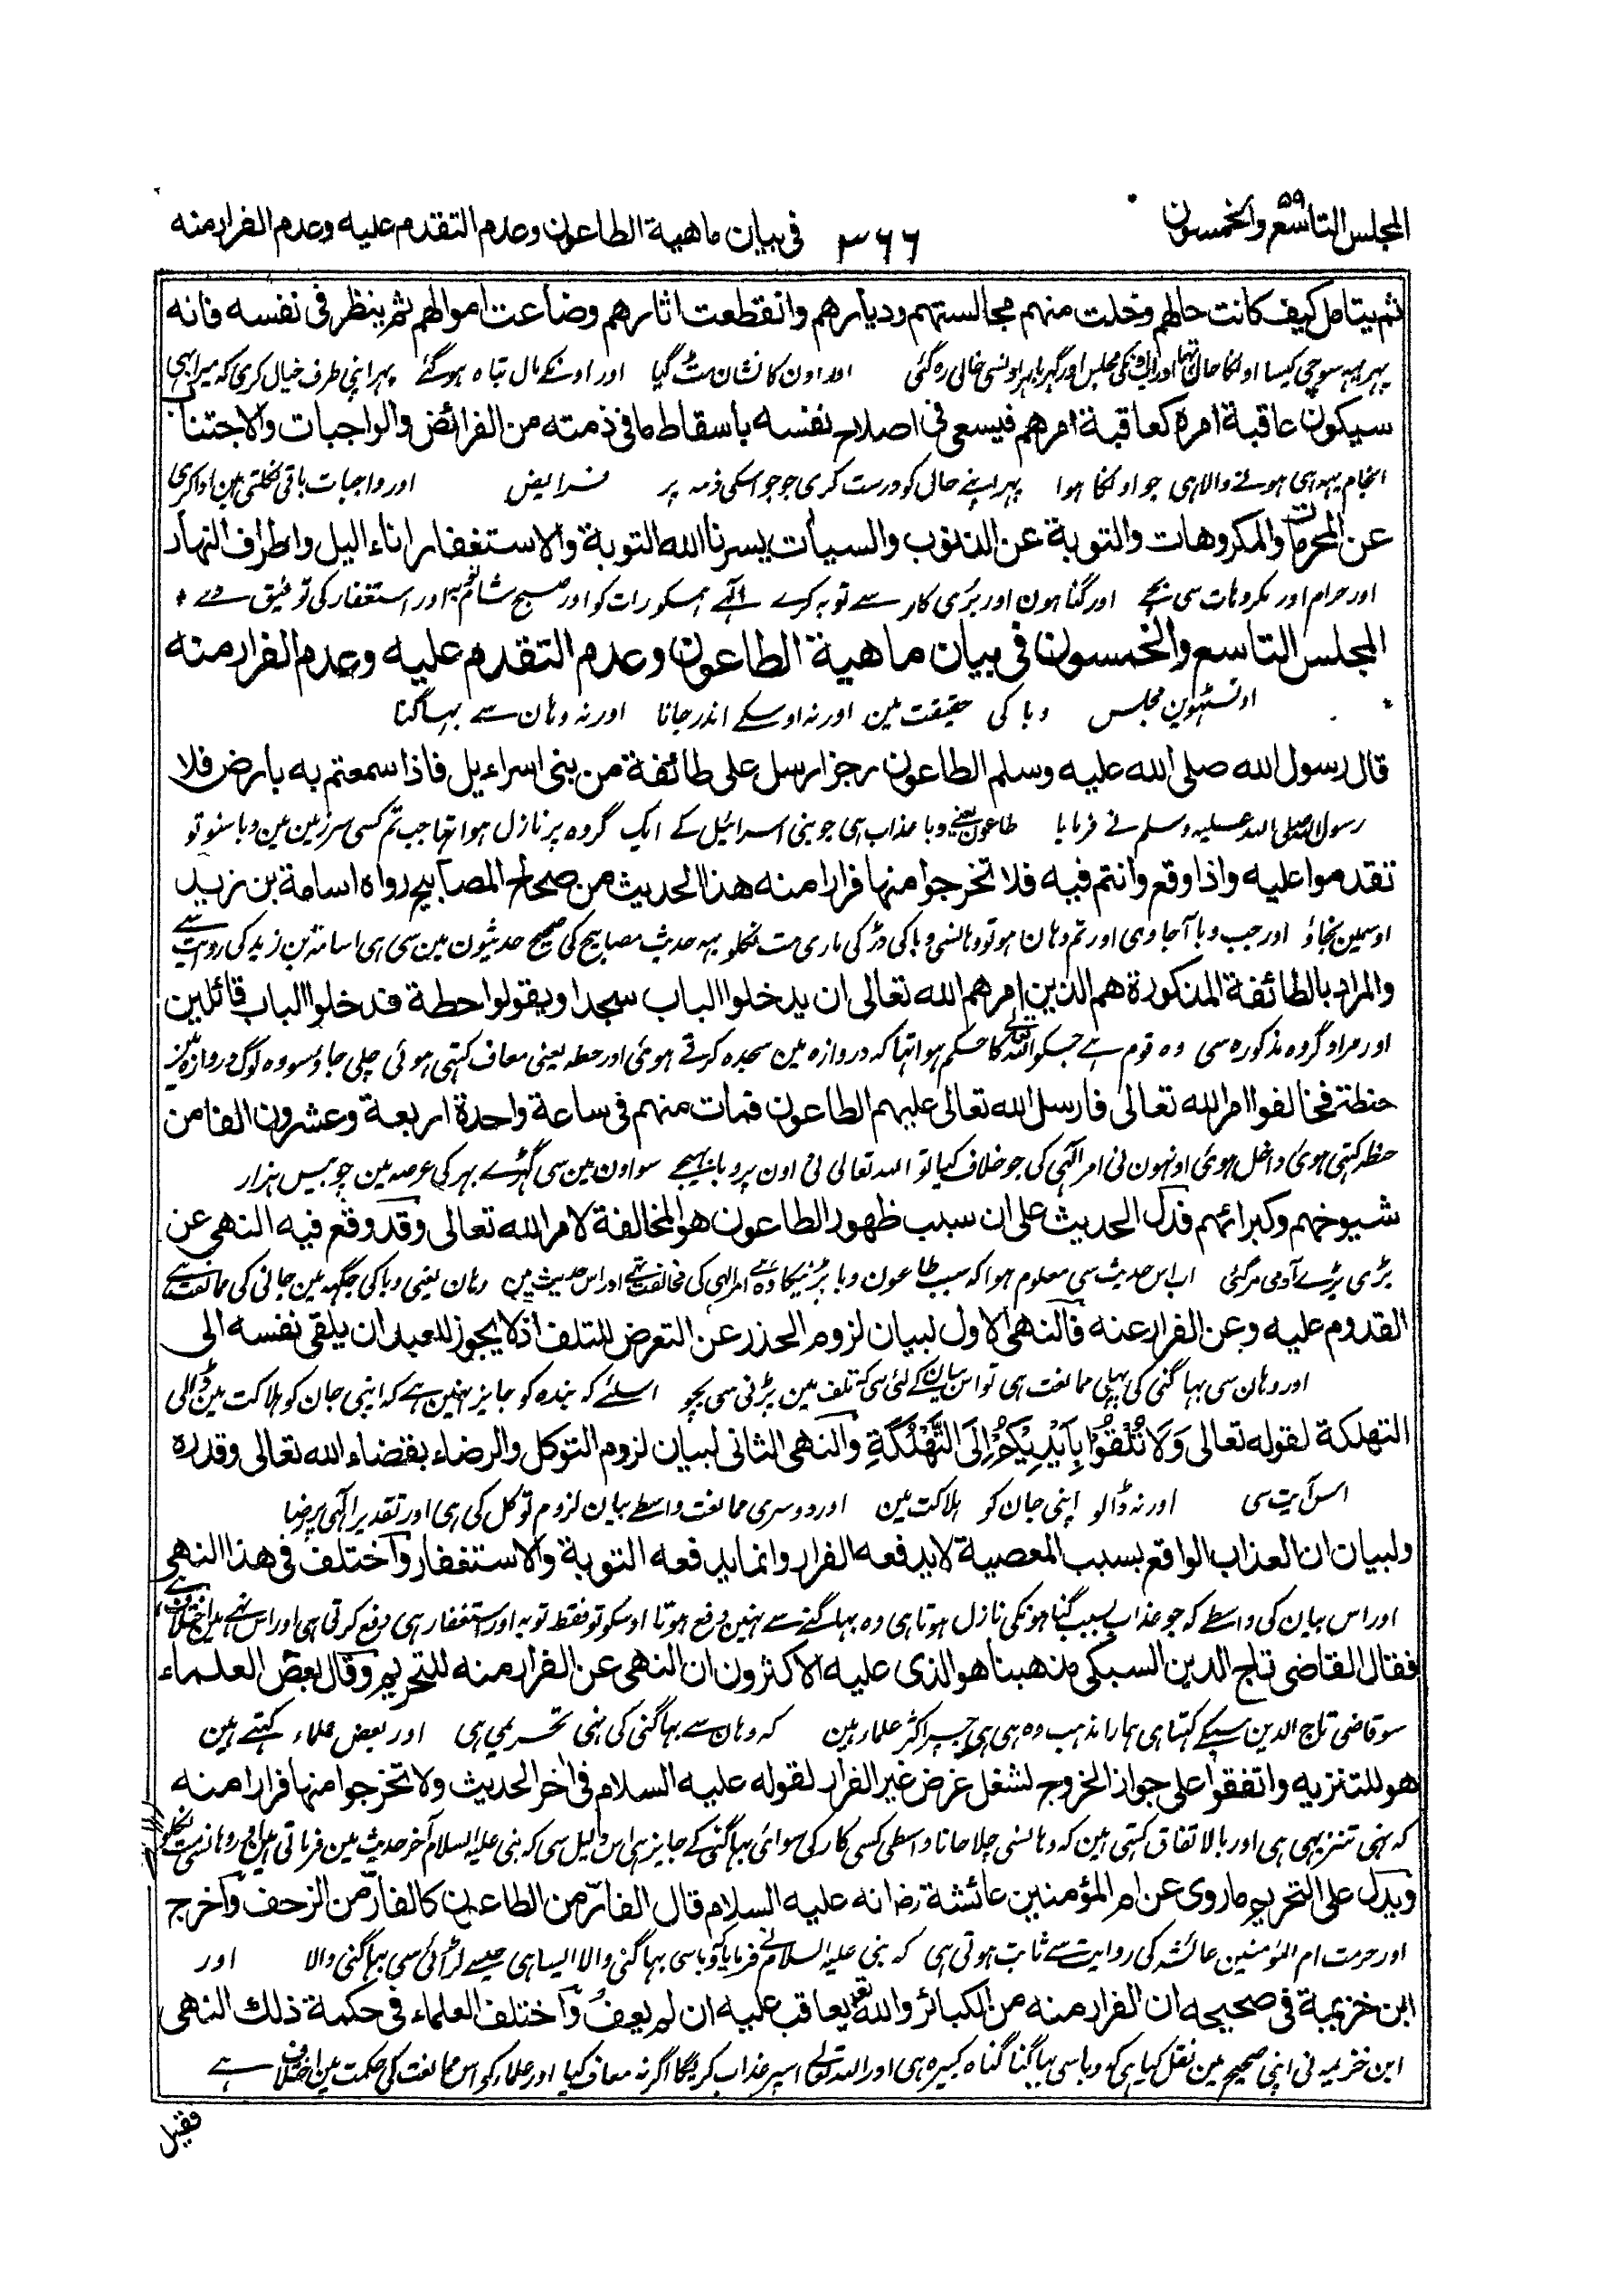 المجلس التاسع والخمسون ٥٩ ٣٦٦ فی بیان ماهیة الطاعون وعدم التقدم علیه وعدم الفرار منه
ثم یتامل کیف کانت حالهم وخلت منهم مجالستهم ودیارهم وانقطعت اثارهم وضاعت اموالهم ثم ینظر فی نفسه فانه
پهر یہہ سوچی کیسا اونکا حال تہا اور اونکی مجلس اور گہر باہر اونسی خالی رہ گئی اور اون کا نشان مٹ گیا اور اونکے مال تباہ ہوگئے پہر اپنی طرف خیال کری کہ میرا بہی
سیکون عاقبة امره کعاقبة امرهم فیسعی فی اصلاح نفسه باسقاط ما فی ذمته من الفرائض والواجبات والاجتناب
انجام یہہ ہی ہونے والا ہی جو اونکا ہوا پہر اپنے حال کو درست کری جو جو اسکی ذمہ پر فرایض اور واجبات باقی نکلتی ہین ادا کری
عن المحرمات والمکروهات والتوبة عن الذنوب والسیأت یسرنا الله التوبة والاستغفار اناء الیل واطراف النهار
اور حرام اور مکروہات سی بچے اور گناہون اور بُری کار سے توبہ کرے الہے ہمکو رات کو اور صبح شام توبہ اور استغفار کی توفیق دے
المجلس التاسع والخمسون فی بیان ماهیة الطاعون وعدم التقدم علیه وعدم الفرار منه
اونسٹہوین مجلس وبا کی حقیقت مین اور نہ اوسکے اندر جانا اور نہ وہان سے بہاگنا
قال رسول الله صلی الله علیه وسلم الطاعون رجز ارسل علی طائفة من بنی اسراءیل فاذا سمعتم به بارض فلا
رسول اللہ صلی اللہ علیہ وسلم نے فرمایا طاعون یعنے وبا عذاب ہی جو بنی اسرائیل کے ایک گروہ پر نازل ہوا تہا جب تم کسی سرزمین مین وبا سنو تو
تقدموا علیه واذا وقع وانتم فیه فلا تخرجوا منها فرارا منه هذا الحدیث من صحاح المصابیح رواه اسامة بن زید
اوسمین نجاؤ اور جب وبا آجاوی اور تم وہان ہو تو وہانسی وبا کی ڈر کی ماری مت نکلو یہہ حدیث مصابیح کی صحیح حدیثون مین سی ہی اسامہ بن زید کی روایت سے
والمراد بالطائفة المذکورة هم الذین امرهم الله تعالی ان یدخلوا الباب سجدا ویقولوا حطة فدخلوا الباب قائلین
اور مراد گروہ مذکورہ سی وہ قوم ہے جسکو اللہ تعالے کا حکم ہوا تہا کہ دروازہ مین سجدہ کرتے ہوئی اور حطہ یعنی معاف کہتی ہوئی چلی جاؤ سو وہ لوگ دروازہ مین
حنطة فخالفوا امر الله تعالی فارسل الله تعالی علیهم الطاعون فمات منهم فی ساعة واحدة اربعة وعشرون الفا من
حنطہ کہتی ہوئی داخل ہوئی اونہون نی امر الہی کی جو خلاف کیا تو اللہ تعالی نی اون پر وبا بہیجے سو اون مین سی گہڑے بہر کی عرصہ مین چوبیس ہزار
شیوخهم وکبرائهم فدل الحدیث علی ان سبب ظهور الطاعون هو المخالفة لامر الله تعالی وقد وقع فیه النهی عن
بڑی بڑے آدمی مرگئی اب اس حدیث سی معلوم ہوا کہ سبب طاعون وبا پڑنیکا امر الہی کی مخالفت ہے اور اس حدیث مین وہان یعنی وبا کی جگہہ مین جانی کی ممانعت ہے
القدوم علیه وعن الفرار عنه فالنهی الاول لبیان لزوم الحذر عن التعرض للتلف اذ لا یجوز للعبد ان یلقی نفسه الی
اور وہان سی بہاگنی کی پہلی ممانعت ہی تو اس بیان کے لئی ہی کہ تلف مین پڑنی سی بچو اسلئے کہ بندہ کو جایز نہین ہے کہ اپنی جان کو ہلاکت مین ڈالی
التهلکة لقوله تعالی وَلَا تُلْقُوْا بِاَیْدِیْکُمْ اِلَی التَّهْلُکَةِ والنهی الثانی لبیان لزوم التوکل والرضاء بقضاء الله تعالی وقدره
اس آیت سی اور نہ ڈالو اپنی جان کو ہلاکت مین اور دوسری ممانعت واسطے بیان لزوم توکل کی ہی اور تقدیر الہی پر رضا
ولبیان ان العذاب الواقع بسبب المعصیة لا یدفعه الفرار وانما یدفعه التوبة والاستغفار واختلف فی هذا النهی
اور اس بیان کی واسطے کہ جو عذاب بسبب گناہونکی نازل ہوتا ہی وہ بہاگنے سے نہین دفع ہوتا اوسکو تو فقط توبہ اور استغفار ہی دفع کرتی ہی اور اس نہے مین اختلاف ہے
فقال القاضی تاج الدین السبکی مذهبنا هو الذی علیه الاکثرون ان النهی عن الفرار منه للتحریم وقال بعض العلماء
سو قاضی تاج الدین سبکے کہتا ہی ہمارا مذہب وہ ہی ہی جسپر اکثر علماء ہین کہ وہان سے بہاگنی کی نہی تحریمی ہی اور بعض علماء کہتے ہین
هو للتنزیه واتفقوا علی جواز الخروج لشغل غرض غیر الفرار لقوله علیه السلام فی اخر الحدیث ولا تخرجوا منها فرارا منه
کہ نہی تنزیہی ہی اور بالاتفاق کہتی ہین کہ وہانسی چلا جانا واسطی کسی کار کی سوائی بہاگنی کے جایز ہی اس دلیل سی کہ نبی علیہ السلام آخر حدیث مین فرماتی ہین وہانسی مت نکلو
ویدل علی التحریم ما روی عن ام المؤمنین عائشة رض انه علیه السلام قال الفارّ من الطاعون کالفارّ من الزحف واخرج
اور حرمت ام المؤمنین عائشہ کی روایت سے ثابت ہوتی ہی کہ نبی علیہ السلام نے فرمایا کہ وبا سی بہاگنی والا ایسا ہی جیسے لڑائی سی بہاگنی والا اور
ابن خزیمة فی صحیحه ان الفرار منه من الکبائر والله تع یعاقب علیه ان لم یعف واختلف العلماء فی حکمة ذلك النهی
ابن خزیمہ نی اپنی صحیح مین نقل کیا ہی کہ وبا سی بہاگنا گناہ کبیرہ ہی اور اللہ تعالے اسپر عذاب کریگا اگر نہ معاف کیا اور علماء کو اس ممانعت کی حکمت مین اختلاف ہے
فقیل